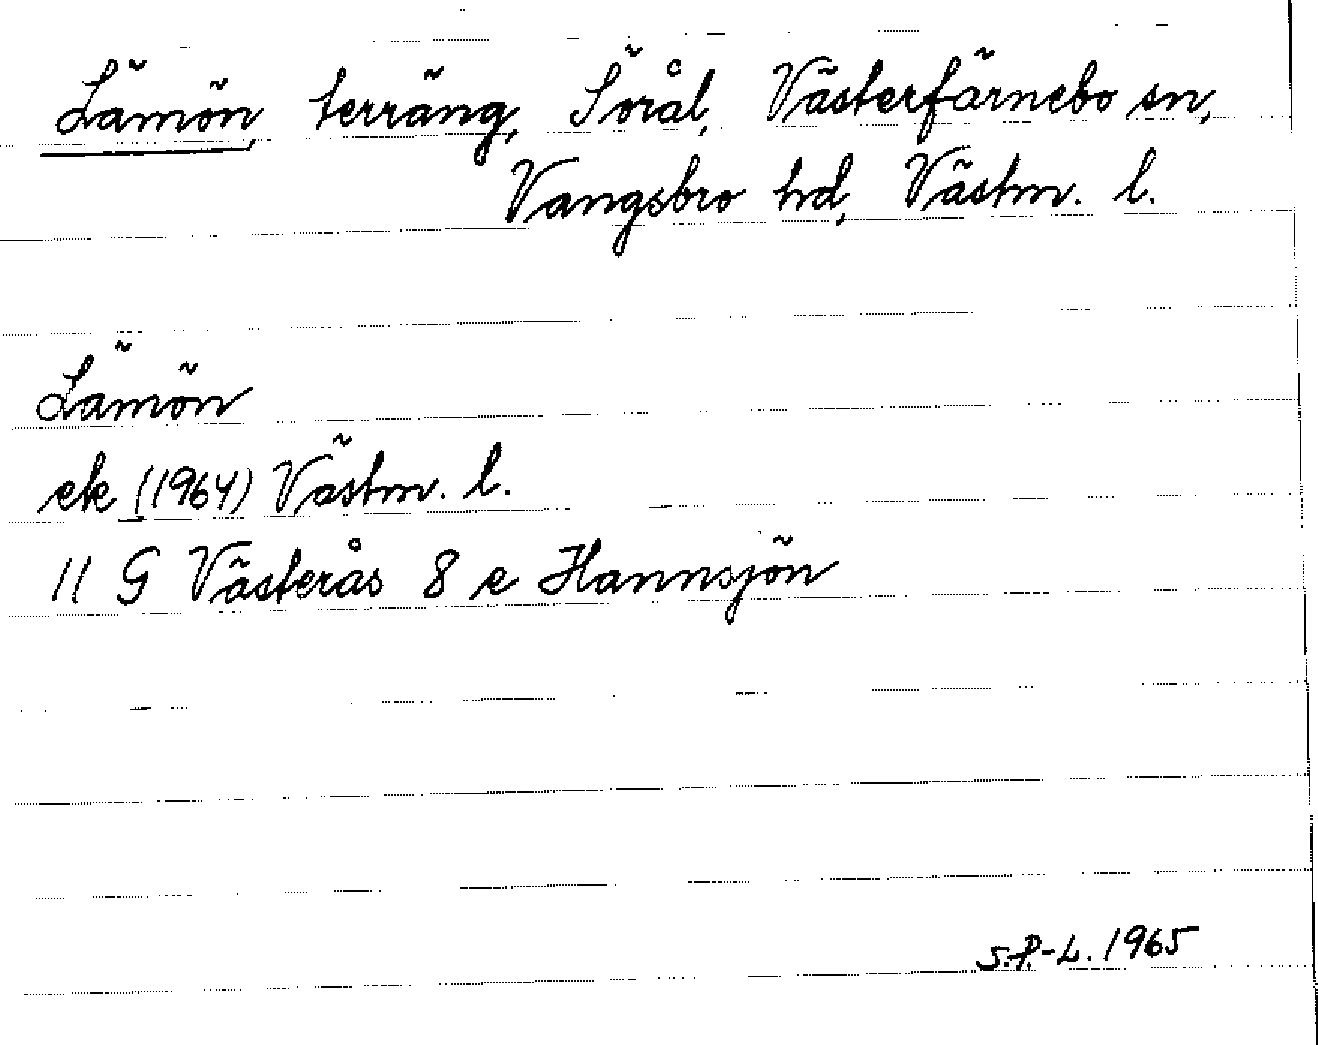 Lämön, terräng, Sörål, Västerfärnebo sn,
Vangsbro hd, Västm. l.
Lämön
ek (1964) Västm. l.
11 G Västerås 8 e Hannsjön
S.P.-L. 1965